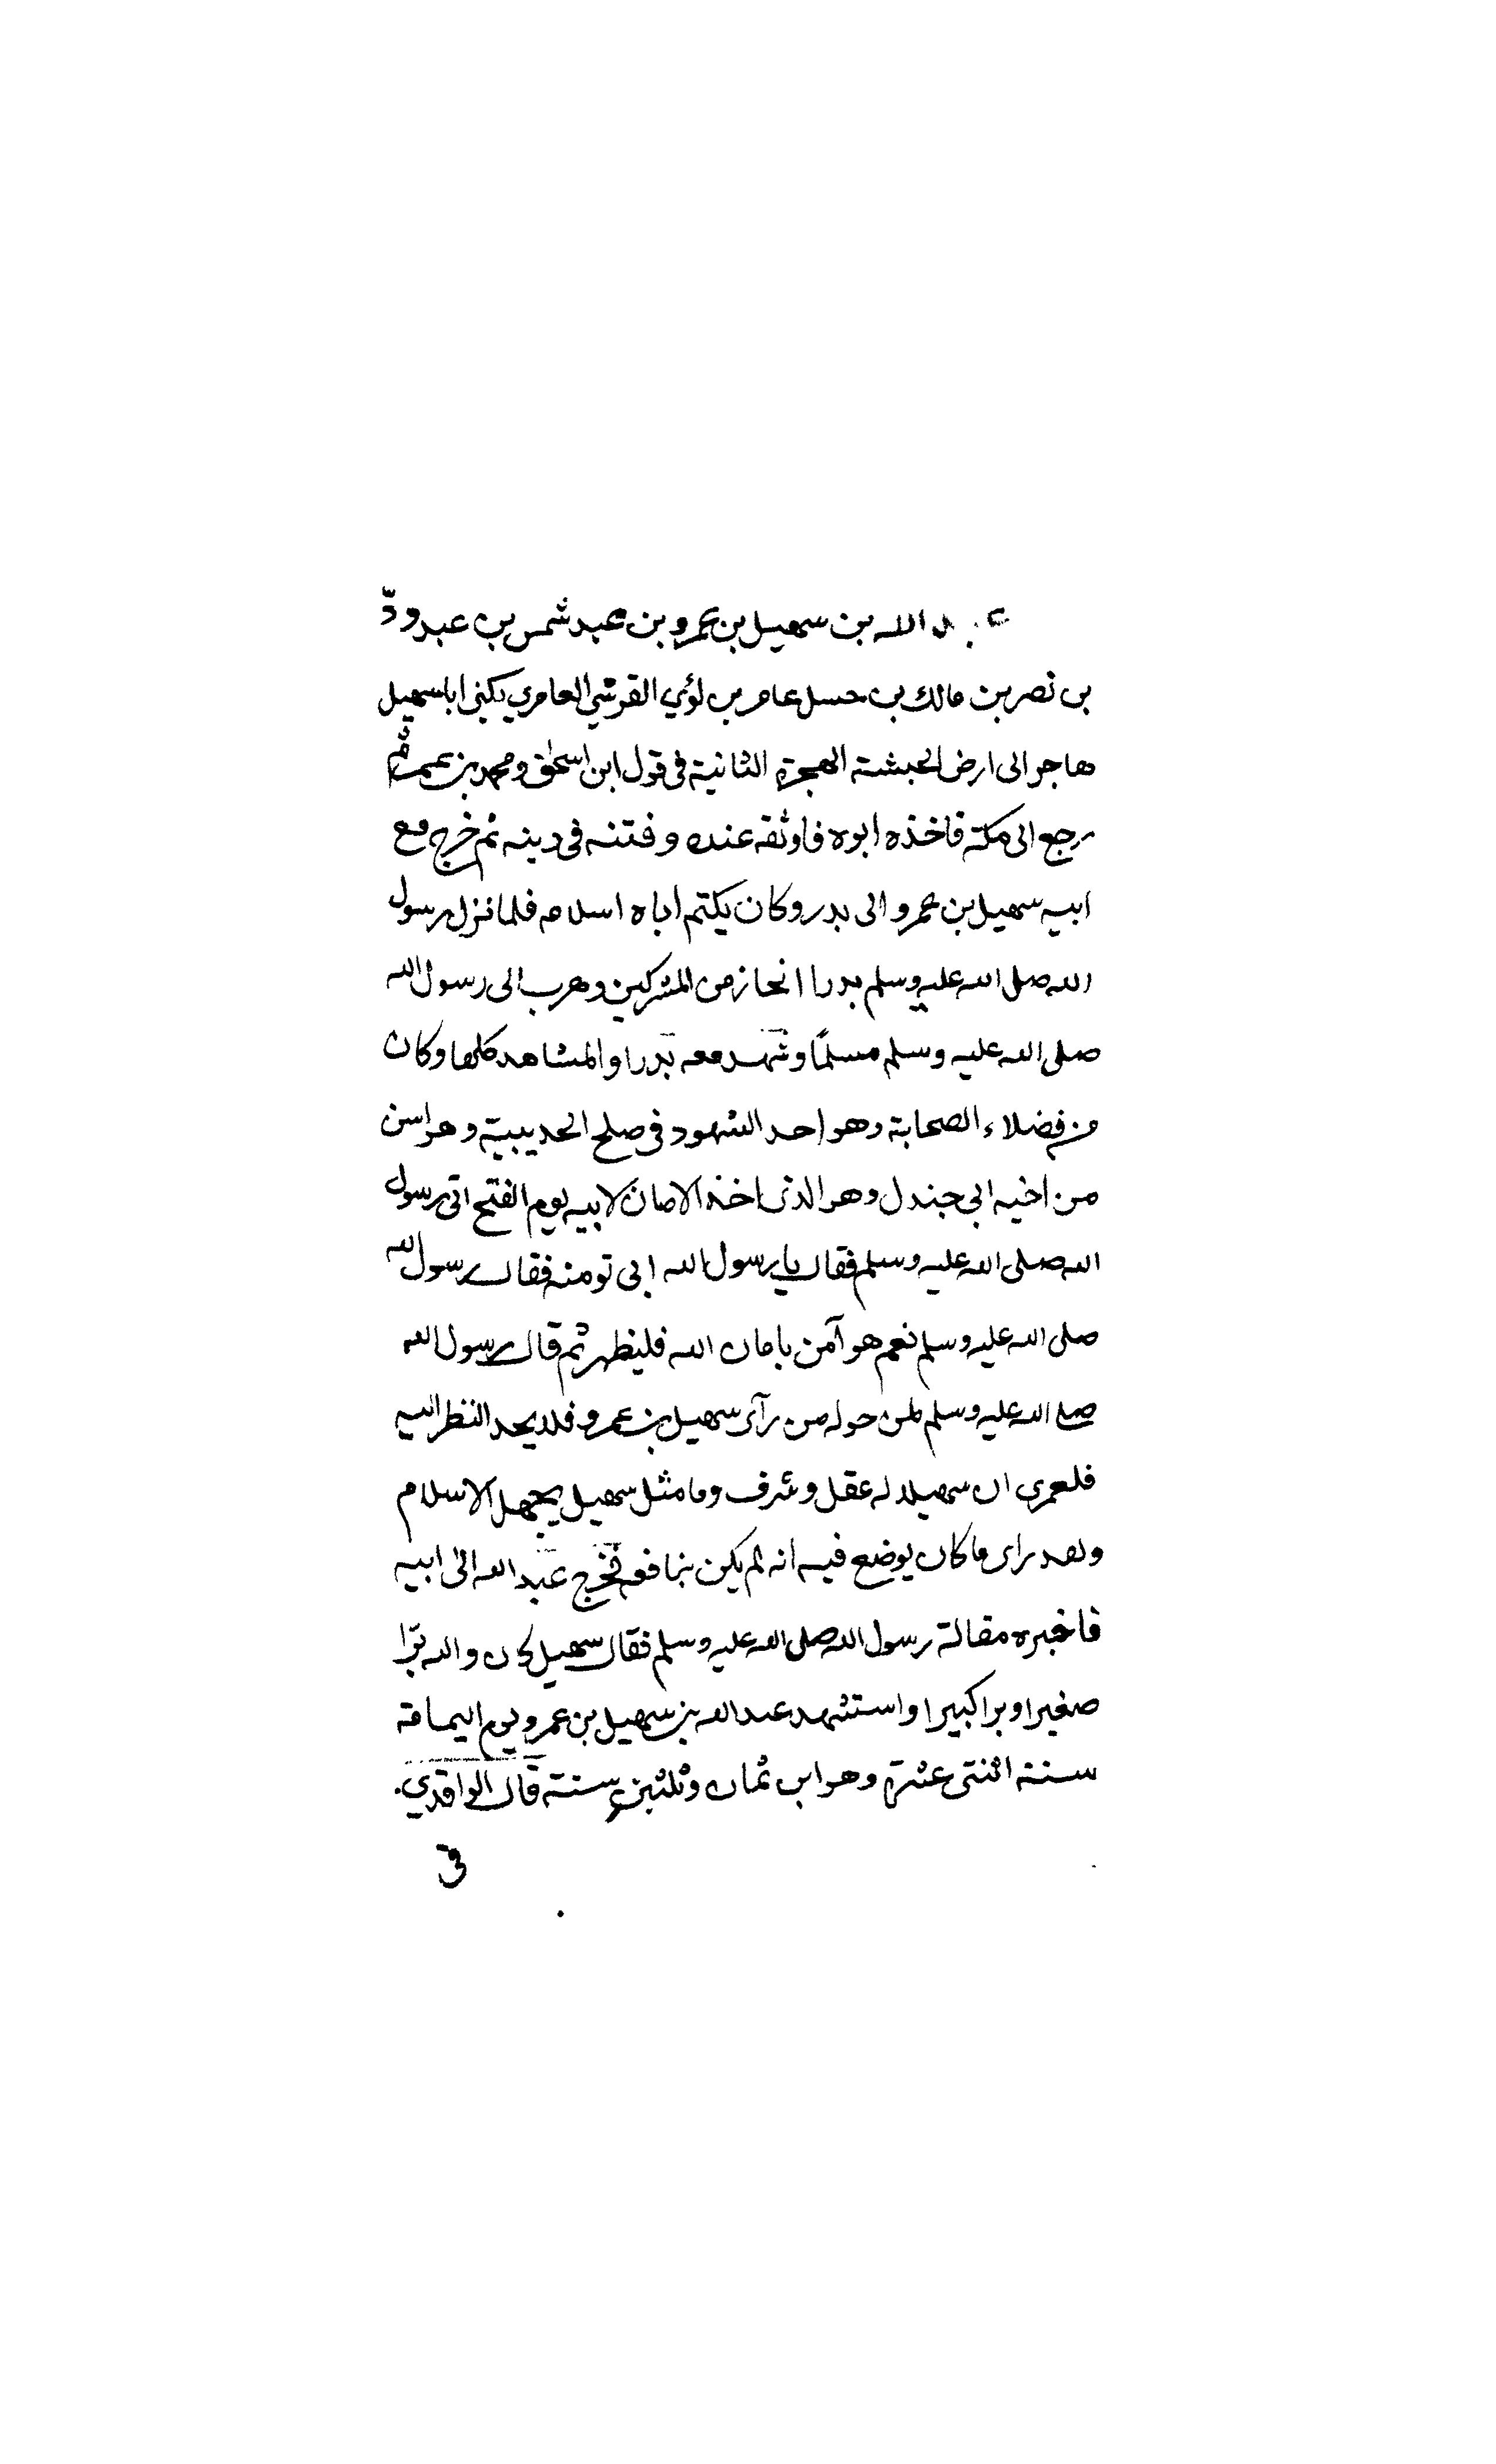 عبد الله بن سهيل بن عمرو بن عبد شمس بن عبد ودّ
بن نصر بن مالك بن حسل عامر بن لؤي القرشي العامري يكنى ابا سهيل
هاجر الى ارض الحبشة الهجرة الثانية فى قول ابن اسحٰق ومحمد بن عمر ثم
رجع الى مكة فاخذه ابوه فاوثقه عنده وفتنه فى دينه ثم خرج مع
ابيه سهيل بن عمرو الى بدر وكان يكتم اباه اسلامه فلما نزل رسول
الله صلى الله عليه وسلم بدرا انحاز من المشركين وهرب الى رسول الله
صلى الله عليه وسلم مسلمًا وشهد معه بدرا والمشاهد كلها وكان
من فضلاء الصحابة وهو احد الشهود فى صلح الحديبية وهو اسن
من اخيه ابي جندل وهو الذى اخذ الامان لابيه يوم الفتح اتى رسول
الله صلى الله عليه وسلم فقال يا رسول الله ابى تومنه فقال رسول الله
صلى الله عليه وسلم نعم هو آمن بامان الله فليظهر ثم قال رسول الله
صلى الله عليه وسلم لمن حوله من رآى سهيل بن عمرو فلا يحد النظر اليه
فلعمرى ان سهيلا له عقل وشرف وما مثل سهيل يجهل الاسلام
ولقد راى ما كان يوضع فيه انه لم يكن بنافعه فخرج عبد الله الى ابيه
فاخبره مقالة رسول الله صلى الله عليه وسلم فقال سهيل كان والله برّا
صغيرا وبرا كبيرا واستشهد عبد الله بن سهيل بن عمرو يوم اليمامة
سنة اثنتى عشرة وهو ابن ثمان وثلثين سنة قال الواقدي